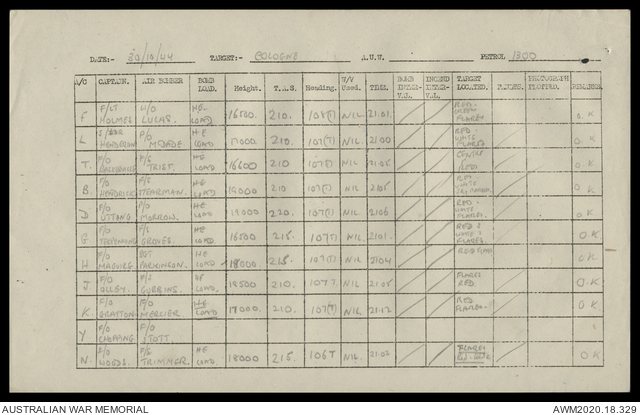 DATE:- 30/10/44 TARGET:- COLOGNE A.U.W. PETROL 1300
A/C CAPTAIN. AIR BOMBER BOMB LOAD. Height. T.A.S. Heading. W/V Used. TIME. BOMB INTERVAL. INCEND INTERVAL. TARGET LOCATED. PHOTOGRAPH PLOTTED. REMARKS
F F/LT HOLMES LUCAS. HE LOAD 16500. 210. 107(T) NIL 21.01 RED GREEN FLARES O.K
L HENDERSON P/O McDADE HE LOAD 17000 210. 107(T) NIL 2100 RED. WHITE FLARES O.K
T. F/O F/S TRIST. HE LOAD 16600 210 107(T) NIL 21.05 RED O.K
B. F/O HENDRICK F/S STEARMAN. HE LOAD 19000 210 107(T) NIL. 2105 RED. WHITE O.K
D F/O UTTING F/O MORROW. HE LOAD 19000 220. 107(T) NIL 2106 RED. WHITE FLARES. O.K
G F/O F/S GROVES. HE LOAD 16500 215. 107(T) NIL 2101. RED & WHITE FLARES. O.K
H F/O MAGUIRE SGT PARKINSON. HE LOAD 18000. 215. 107(T) NIL 2104 RED O.K
J F/O OLLEY. F/S GUBBINS. HE LOAD. 18500 210. 107 T. NIL. 21.05 FLARES RED. O.K
K F/O GRAFTON F/O MERCIER HE LOAD 17000 210. 107(T) NIL. 21.12 RED FLARES. O.K
Y F/O CHOPPING F/O STOTT.
N. F/O WOODS. F/S TRIMMER. HE LOAD. 18000 215. 106T NIL. 21.02 FLARES O.K
AUSTRALIAN WAR MEMORIAL AWM2020.18.329